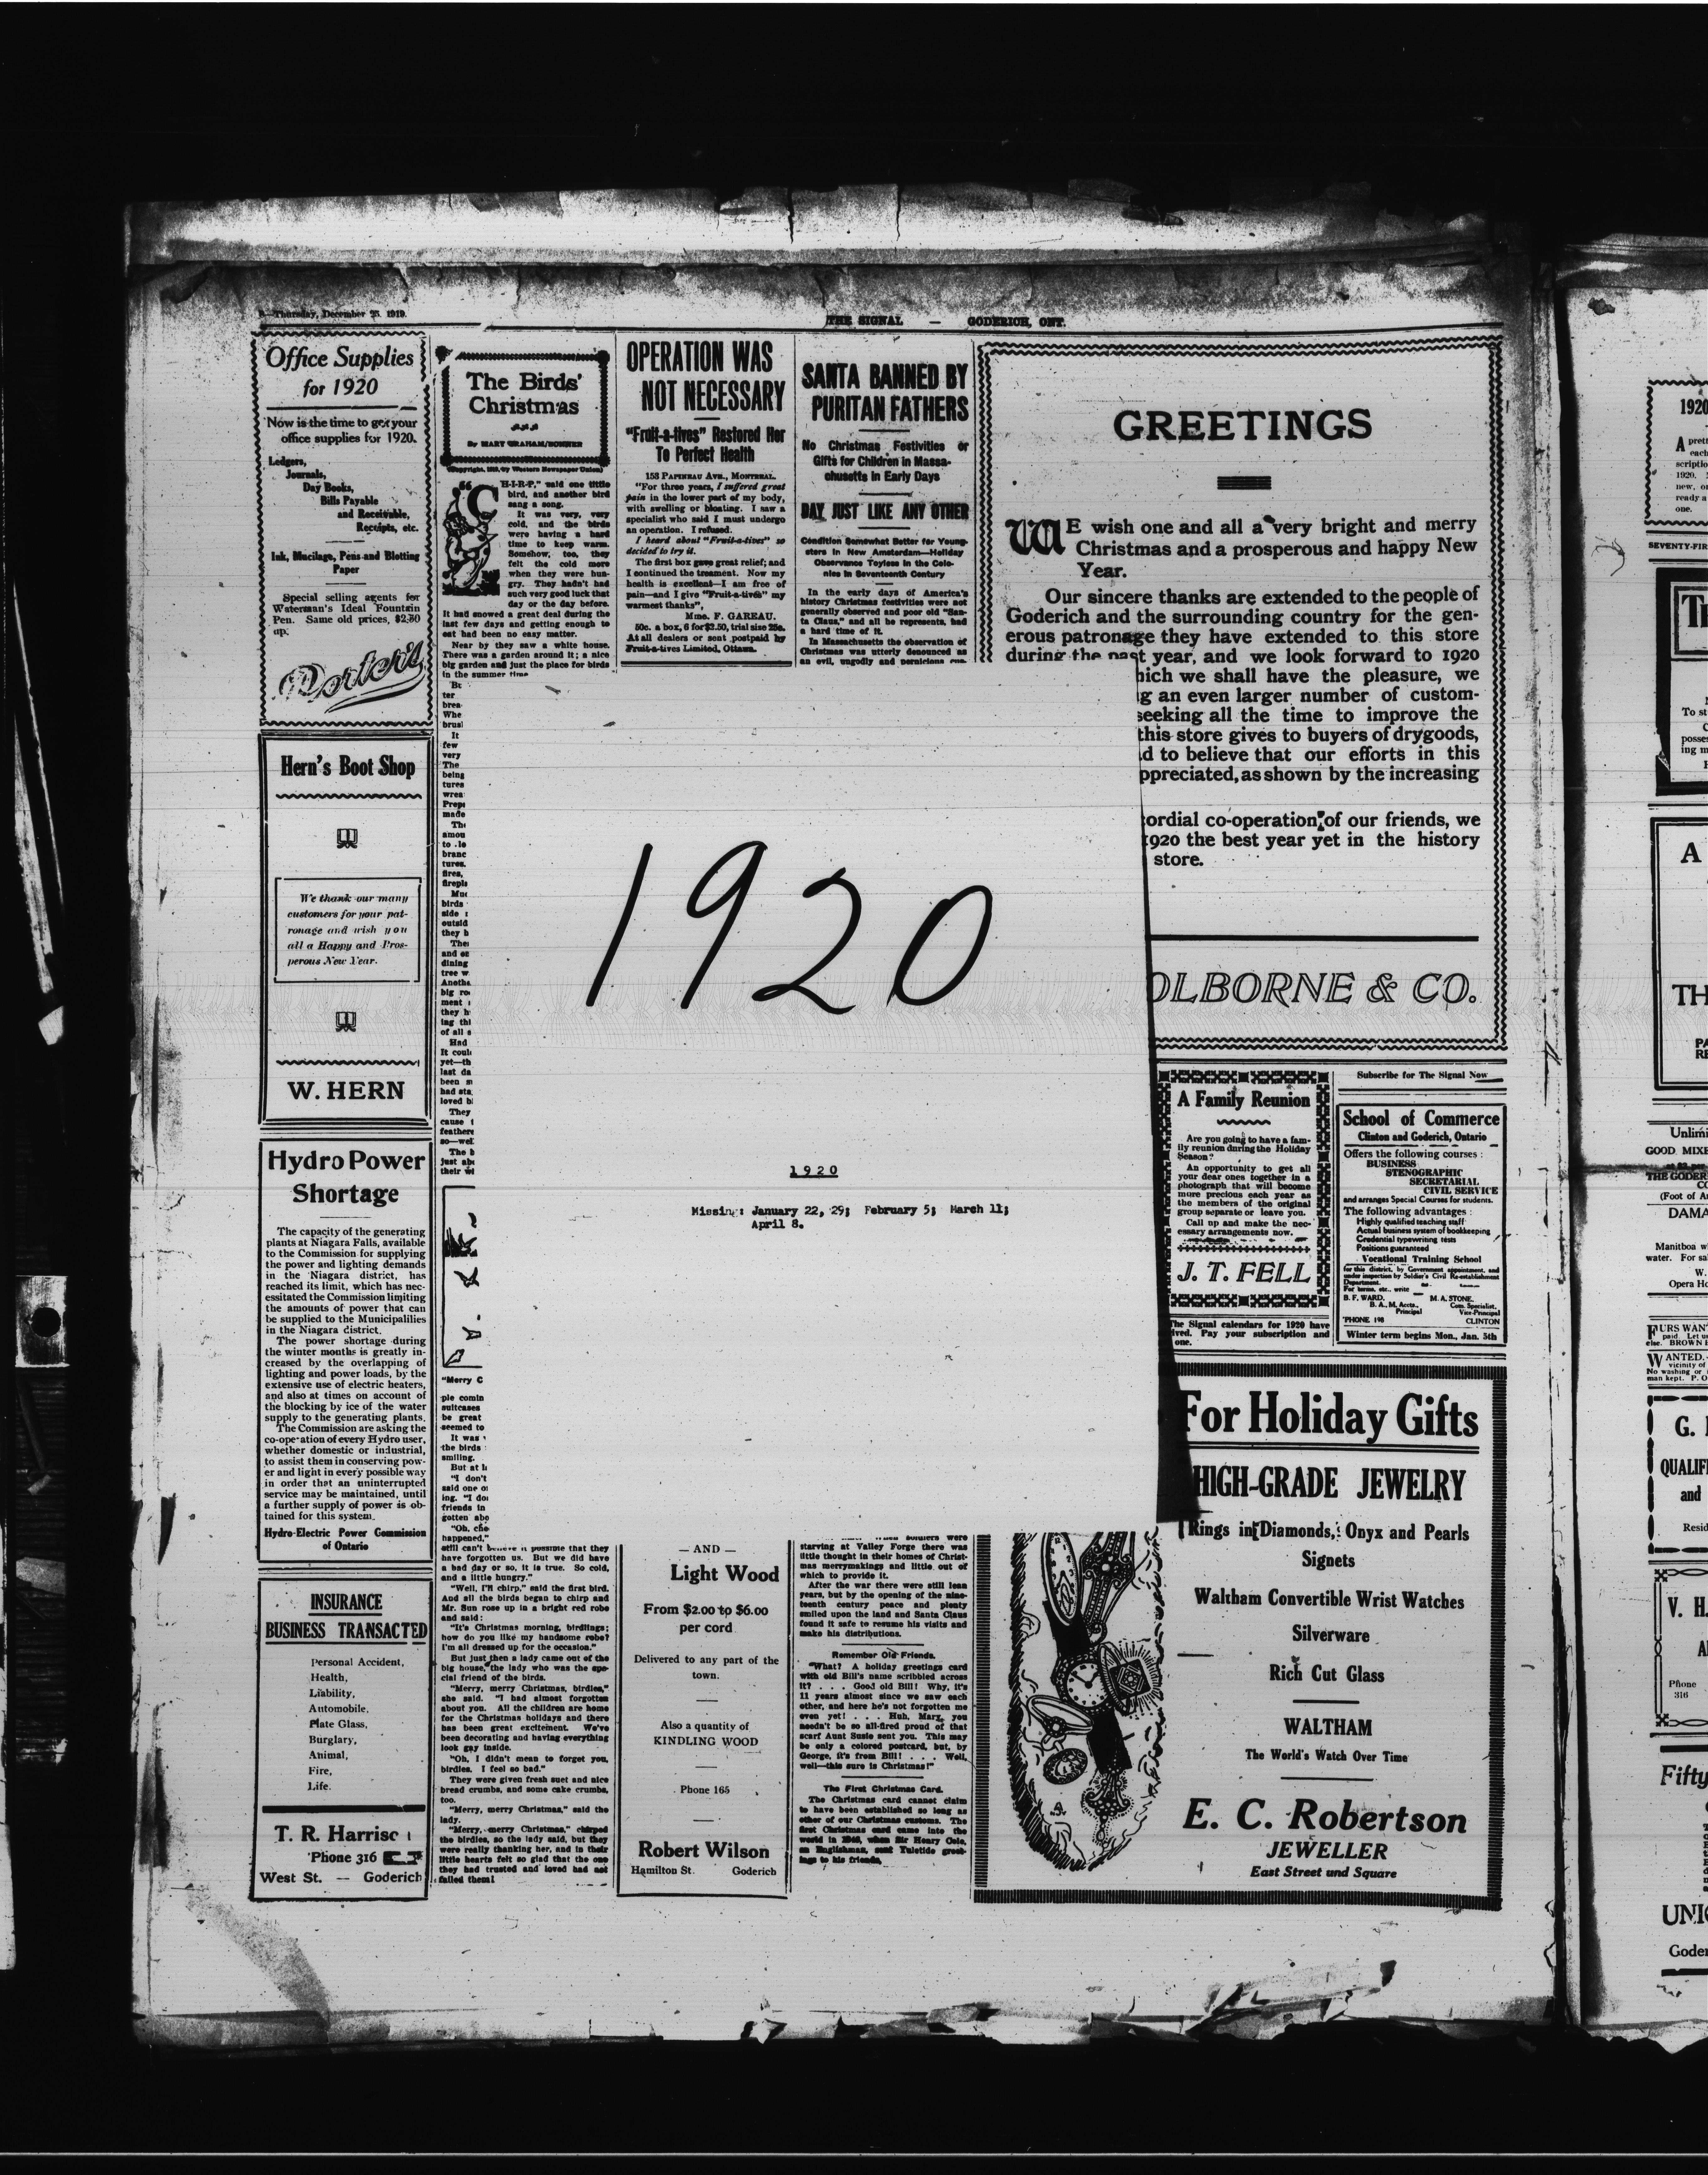 8—Thursday, December 25, 1919.
THE SIGNAL — GODERICH, ONT.
Office Supplies
for 1920
Now is the time to get your
office supplies for 1920.
Ledgers,
Journals,
Day Books,
Bills Payable
and Receivable,
Receipts, etc.
Ink, Mucilage, Pens and Blotting
Paper
Special selling agents for
Waterman's Ideal Fountain
Pen. Same old prices, $2.50
up.
Porter's
Hern's Boot Shop
We thank our many
customers for your pat-
ronage and wish you
all a Happy and Pros-
perous New Year.
W. HERN
Hydro Power
Shortage
The capacity of the generating
plants at Niagara Falls, available
to the Commission for supplying
the power and lighting demands
in the Niagara district, has
reached its limit, which has nec-
essitated the Commission limiting
the amounts of power that can
be supplied to the Municipalities
in the Niagara district.
The power shortage during
the winter months is greatly in-
creased by the overlapping of
lighting and power loads, by the
extensive use of electric heaters,
and also at times on account of
the blocking by ice of the water
supply to the generating plants.
The Commission are asking the
co-operation of every Hydro user,
whether domestic or industrial,
to assist them in conserving pow-
er and light in every possible way
in order that an uninterrupted
service may be maintained, until
a further supply of power is ob-
tained for this system.
Hydro-Electric Power Commission
of Ontario
INSURANCE
BUSINESS TRANSACTED
Personal Accident,
Health,
Liability,
Automobile,
Plate Glass,
Burglary,
Animal,
Fire,
Life.
T. R. Harriso
'Phone 316
West St. — Goderich
The Birds'
Christmas
By MARY GRAHAM BONNER
(Copyright, 1919, by Western Newspaper Union)
"CH-I-R-P," said one little
bird, and another bird
sang a song.
It was very, very
cold, and the birds
were having a hard
time to keep warm.
Somehow, too, they
felt the cold more
when they were hun-
gry. They hadn't had
such very good luck that
day or the day before.
It had snowed a great deal during the
last few days and getting enough to
eat had been no easy matter.
Near by they saw a white house.
There was a garden around it; a nice
big garden and just the place for birds
in the summer time
still can't believe it possible that they
have forgotten us. But we did have
a bad day or so, it is true. So cold,
and a little hungry."
"Well, I'll chirp," said the first bird.
And all the birds began to chirp and
Mr. Sun rose up in a bright red robe
and said:
"It's Christmas morning, birdlings;
how do you like my handsome robe?
I'm all dressed up for the occasion."
But just then a lady came out of the
big house, the lady who was the spe-
cial friend of the birds.
"Merry, merry Christmas, birdies,"
she said. "I had almost forgotten
about you. All the children are home
for the Christmas holidays and there
has been great excitement. We've
been decorating and having everything
look gay inside.
"Oh, I didn't mean to forget you,
birdies. I feel so bad."
They were given fresh suet and nice
bread crumbs, and some cake crumbs,
too.
"Merry, merry Christmas," said the
lady.
"Merry, merry Christmas," chirped
the birdies, so the lady said, but they
were really thanking her, and in their
little hearts felt so glad that the one
they had trusted and loved had not
failed them!
OPERATION WAS
NOT NECESSARY
"Fruit-a-tives" Restored Her
To Perfect Health
153 PAPINEAU AVE., MONTREAL.
"For three years, I suffered great
pain in the lower part of my body,
with swelling or bloating. I saw a
specialist who said I must undergo
an operation. I refused.
I heard about "Fruit-a-tives" so
decided to try it.
The first box gave great relief; and
I continued the treament. Now my
health is excellent—I am free of
pain—and I give "Fruit-a-tives" my
warmest thanks",
Mme. F. GAREAU.
50c. a box, 6 for $2.50, trial size 25c.
At all dealers or sent postpaid by
Fruit-a-tives Limited, Ottawa.
SANTA BANNED BY
PURITAN FATHERS
No Christmas Festivities or
Gifts for Children in Massa-
chusetts in Early Days
DAY JUST LIKE ANY OTHER
Condition Somewhat Better for Young-
sters in New Amsterdam—Holiday
Observance Toyless in the Colo-
nies in Seventeenth Century
In the early days of America's
history Christmas festivities were not
generally observed and poor old "San-
ta Claus," and all he represents, had
a hard time of it.
In Massachusetts the observation of
Christmas was utterly denounced as
an evil, ungodly and pernicious cus-
1920
1920
Missing: January 22, 29; February 5; March 11;
April 8.
— AND —
Light Wood
From $2.00 to $6.00
per cord
Delivered to any part of the
town.
Also a quantity of
KINDLING WOOD
Phone 165
Robert Wilson
Hamilton St. Goderich
When soldiers were
starving at Valley Forge there was
little thought in their homes of Christ-
mas merrymakings and little out of
which to provide it.
After the war there were still lean
years, but by the opening of the nine-
teenth century peace and plenty
smiled upon the land and Santa Claus
found it safe to resume his visits and
make his distributions.
Remember Old Friends.
"What? A holiday greetings card
with old Bill's name scribbled across
it? . . . Good old Bill! Why, it's
11 years almost since we saw each
other, and here he's not forgotten me
even yet! . . . Huh, Mary, you
needn't be so all-fired proud of that
scarf Aunt Susie sent you. This may
be only a colored postcard, but, by
George, it's from Bill! . . . Well,
well—this sure is Christmas!"
The First Christmas Card.
The Christmas card cannot claim
to have been established so long as
other of our Christmas customs. The
first Christmas card came into the
world in 1846, when Sir Henry Cole,
an Englishman, sent Yuletide greet-
ings to his friends.
GREETINGS
WE wish one and all a very bright and merry
Christmas and a prosperous and happy New
Year.
Our sincere thanks are extended to the people of
Goderich and the surrounding country for the gen-
erous patronage they have extended to this store
during the past year, and we look forward to 1920
hich we shall have the pleasure, we
g an even larger number of custom-
seeking all the time to improve the
this store gives to buyers of drygoods,
d to believe that our efforts in this
ppreciated, as shown by the increasing
ordial co-operation of our friends, we
1920 the best year yet in the history
store.
OLBORNE & CO.
A Family Reunion
Are you going to have a fam-
ily reunion during the Holiday
Season?
An opportunity to get all
your dear ones together in a
photograph that will become
more precious each year as
the members of the original
group separate or leave you.
Call up and make the nec-
essary arrangements now.
J. T. FELL
The Signal calendars for 1920 have
ived. Pay your subscription and
one.
Subscribe for The Signal Now
School of Commerce
Clinton and Goderich, Ontario
Offers the following courses:
BUSINESS
STENOGRAPHIC
SECRETARIAL
CIVIL SERVICE
and arranges Special Courses for students.
The following advantages:
Highly qualified teaching staff
Actual business system of bookkeeping
Credential typewriting tests
Positions guaranteed
Vocational Training School
for this district, by Government appointment, and
under inspection by Soldier's Civil Re-establishment
Department.
For terms, etc., write
B. F. WARD, M. A. STONE,
B. A., M. Accts., Com. Specialist,
Principal Vice-Principal
'PHONE 198 CLINTON
Winter term begins Mon., Jan. 5th
For Holiday Gifts
HIGH-GRADE JEWELRY
Rings in Diamonds, Onyx and Pearls
Signets
Waltham Convertible Wrist Watches
Silverware
Rich Cut Glass
WALTHAM
The World's Watch Over Time
E. C. Robertson
JEWELLER
East Street and Square